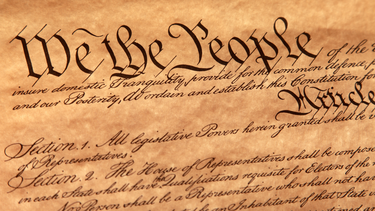 We the People of the
insure domestic Tranquility, provide for the common defence,
and our Posterity, do ordain and establish this Constitution for
Article
Section. 1. All legislative Powers herein granted shall be
of Representatives.
Section. 2. The House of Representatives shall be composed
in each State shall have the Qualifications requisite for Electors of the
No Person shall be a Representative who shall not have
be an Inhabitant of that State in